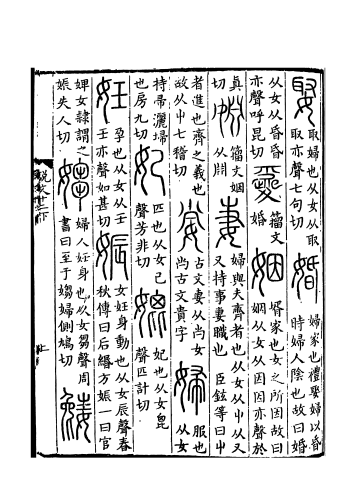 娶取婦也从女从取取亦聲七句切婚婦家也禮娶婦以昏時婦人陰也故曰婚
从女从昏昏亦聲呼昆切籀文婚姻壻家也女之所因故曰姻从女从因因亦聲於
真切籀文姻从開妻婦與夫齊者也从女从屮从又又持事妻職也臣鉉等曰屮
者進也齊之義也故从屮七稽切古文妻从女古文貴字婦服也从女
持帚灑埽也房九切妃匹也从女己聲芳非切媲妃也从女毘聲匹計切
妊孕也从女从壬壬亦聲如甚切娠女妊身動也从女辰聲春秋傳曰后緡方娠一曰官
婢女隸謂之娠失人切媰婦人妊身也从女芻聲周書曰至于媰婦側鳩切
說文十二下